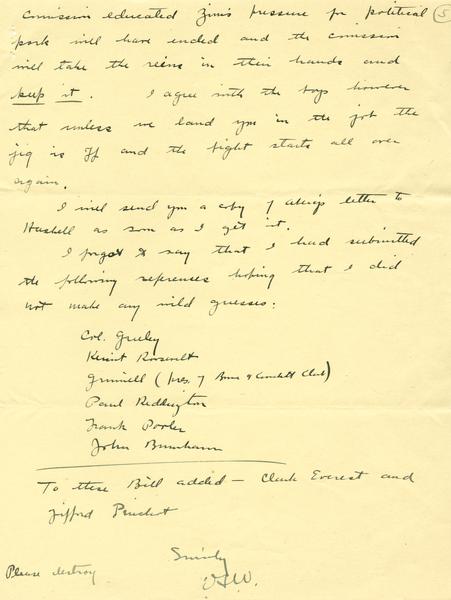 Comission educated Zim's pressure for political 5
pork will have ended and the comission
will take the reins in their hands and
keep it. I agree with the boys however
that unless we land you in the job the
jig is off and the fight starts all over
again.
I will send you a copy of letter to
Haskell as soon as I get it.
I forgot to say that I had submitted
the following references hoping that I did
not make any wild guesses:
Col. Greeley
Kermit Roosevelt
Grinnell (pres. of Boone & Crockett Club)
Paul Reddington
Frank
John Burnham
To these Bill added - Clark Everest and
Gifford Pinchot
Sincerely
Please destroy